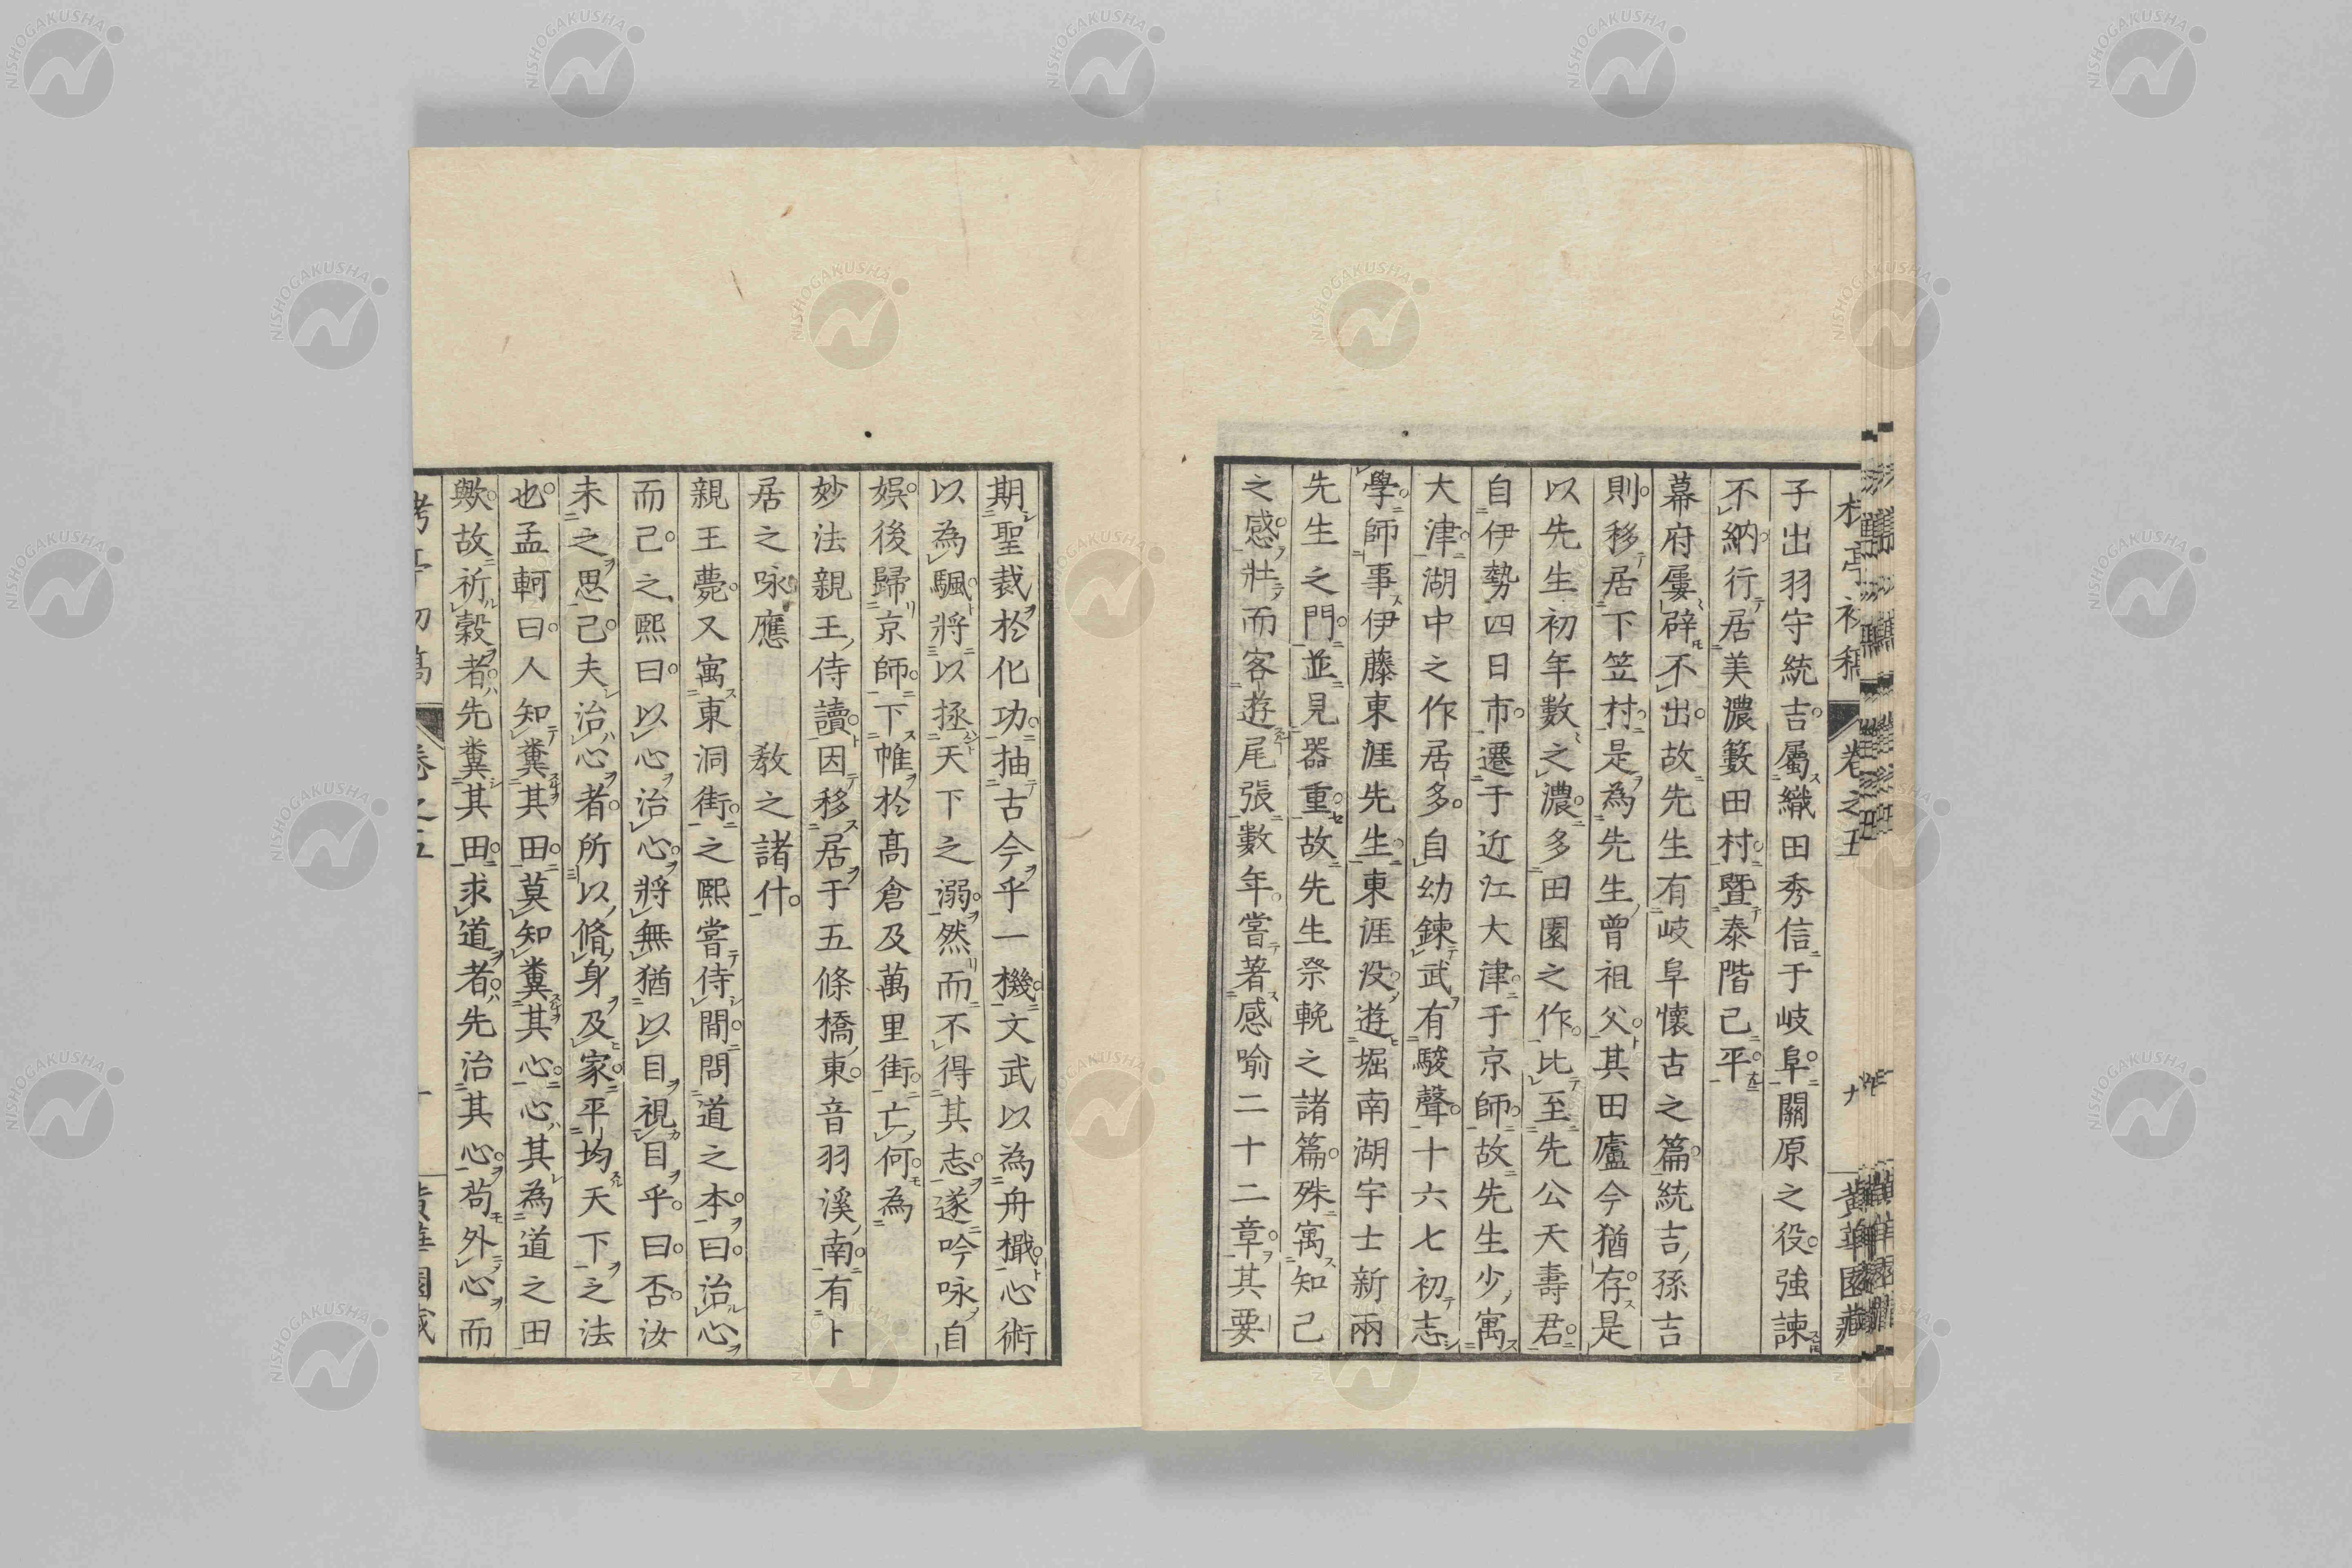 子出羽守統吉屬織田秀信于岐阜關原之役強諫
不納行居美濃籔田村曁泰階已平
幕府屢辟不出故先生有岐阜懷古之篇統吉孫吉
則移居下笠村是為先生曾祖父其田廬今猶存是
以先生初年數之濃多田園之作比至先公天壽君
自伊勢四日市遷于近江大津于京師故先生少寓
大津湖中之作居多自幼鍊武有駿聲十六七初志
學師事伊藤東涯先生東涯沒遊堀南湖宇士新兩
先生之門並見器重故先生祭輓之諸篇殊寓知己
之感壯而客遊尾張數年嘗著感喻二十二章其要
期聖裁於化功抽古今乎一機文武以為舟檝心術
以為颿將以拯天下之溺然而不得其志遂吟咏自
娛後歸京師下帷於髙倉及萬里街亡何為
妙法親王侍讀因移居于五條橋東音羽溪南有卜
居之咏應　教之諸什
親王薨又寓東洞街之熙嘗侍間問道之本曰治心
而已之熙曰以心治心將無猶以目視目乎曰否汝
未之思已夫治心者所以脩身及家平均天下之法
也孟軻曰人知糞其田莫知糞其心心其為道之田
歟故祈穀者先糞其田求道者先治其心苟外心而